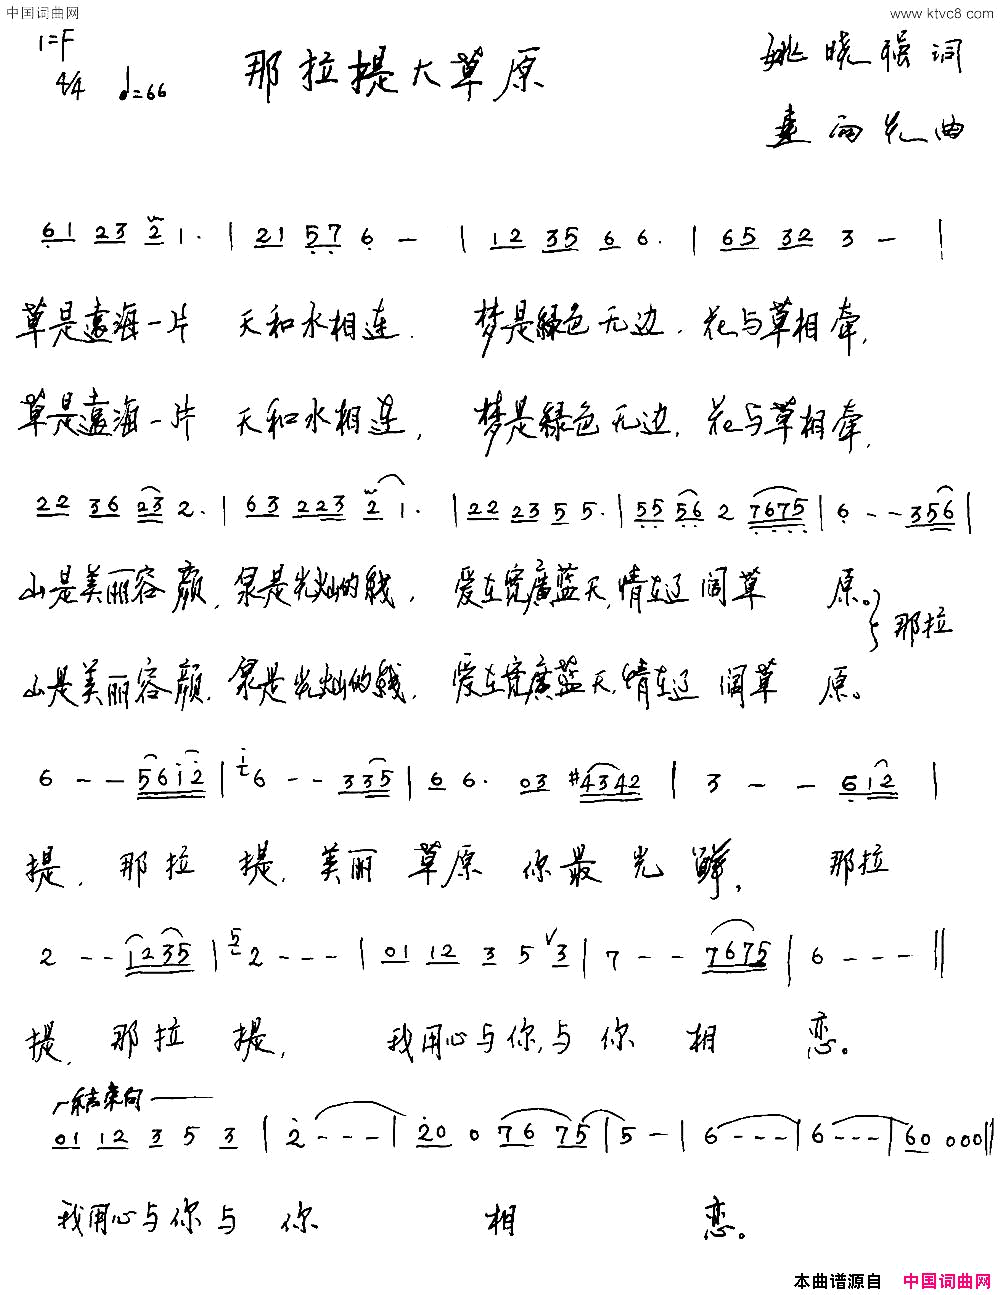 中国词曲网 www.ktvc8.com
1=F
4/4 ♩=66
那拉提大草原
姚晓强词
雨光曲
61 23 2 1· | 21 57 6 – | 12 35 6 6· | 65 32 3 – |
草是遠海一片 天和水相連. 梦是綠色无边. 花与草相牵,
草是遠海一片 天和水相連, 梦是綠色无边. 花与草相牵,
22 36 23 2· | 63 223 2 1· | 22 23 5 5· | 55 56 2 7675 | 6 - - 356 |
山是美丽容颜, 泉是光灿的线, 爱在宽廣蓝天,情在辽阔草原。} 那拉
山是美丽容颜. 泉是光灿的线. 爱在宽廣蓝天,情在辽阔草原。
6 - - 5612 | 6 - - 335 | 6 6· 03 #4342 | 3 - - 612 |
提, 那拉提, 美丽草原你最光鲜, 那拉
2 - - 1235 | 2 - - - | 01 12 3 5 ∨3 | 7 - - 7675 | 6 - - - ||
提, 那拉提, 我用心与你,与你相恋。
结束句
01 12 3 5 3 | 2 - - - | 20 0 76 75 | 5 – | 6 - - - | 6 - - - | 60 000 ||
我用心与你与你相恋。
本曲谱源自 中国词曲网